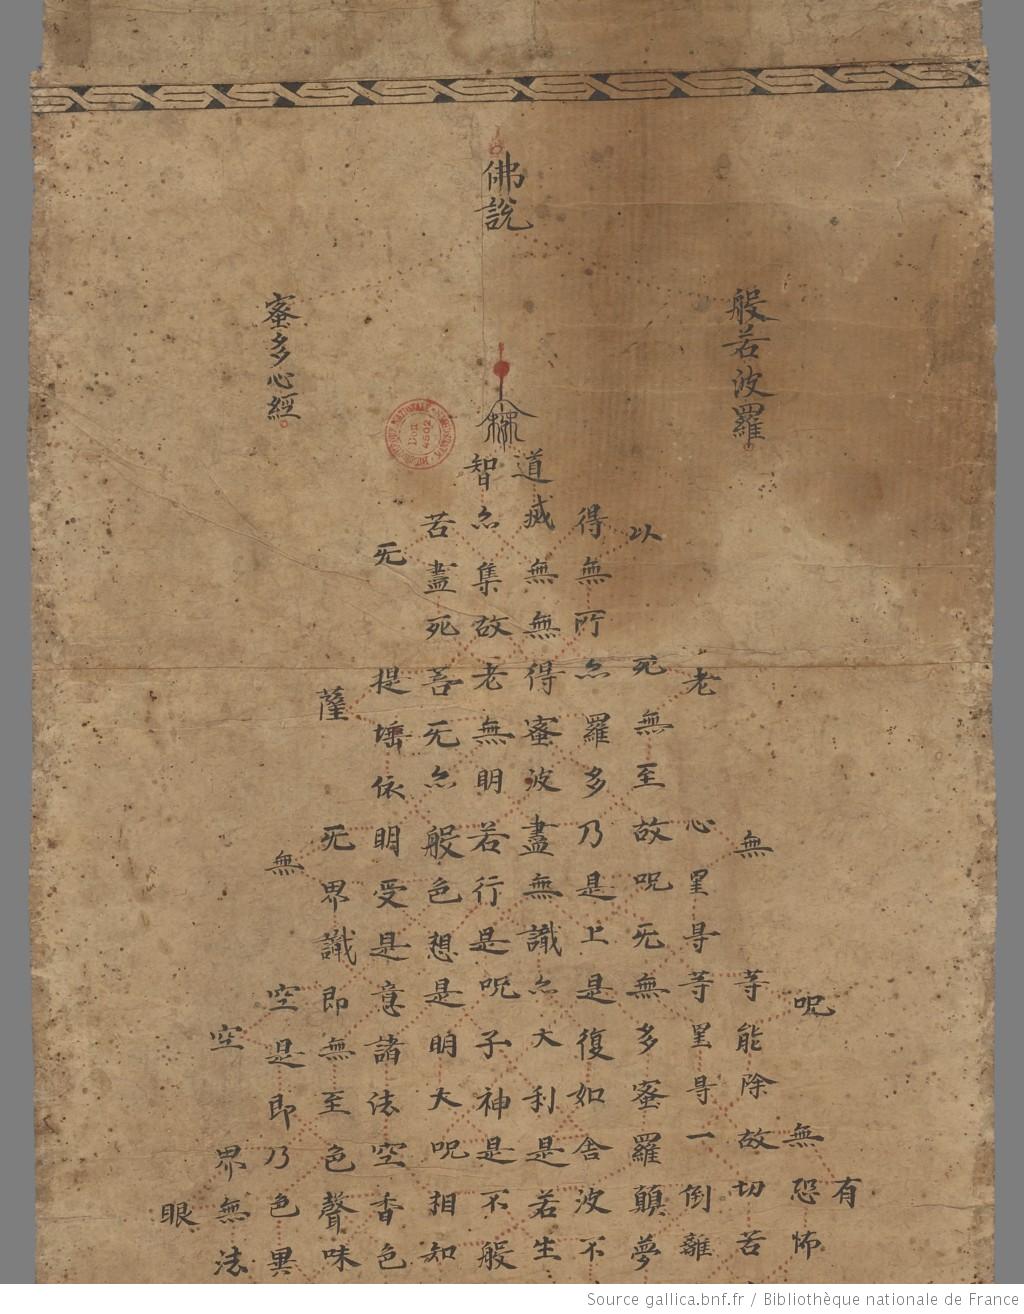 佛說
般若波羅
蜜多心經
有
呪無恐怖
無等能除故切苦
老心罣㝵等罣㝵一倒離
以死無至故呪无無多蜜羅顛夢
得無所尒羅多乃是上是復如舍波不
道滅無無得蜜波盡無識尒大利是若生
智尒集故老無明若行是呪子神是不般
苦盡死菩无尒般色想是明大呪相知
无提埵依明受是意諸法空香色
薩无界識即無至色聲味
無空是即乃色異
空界無法
眼
Don 4502
Source gallica.bnf.fr / Bibliothèque nationale de France